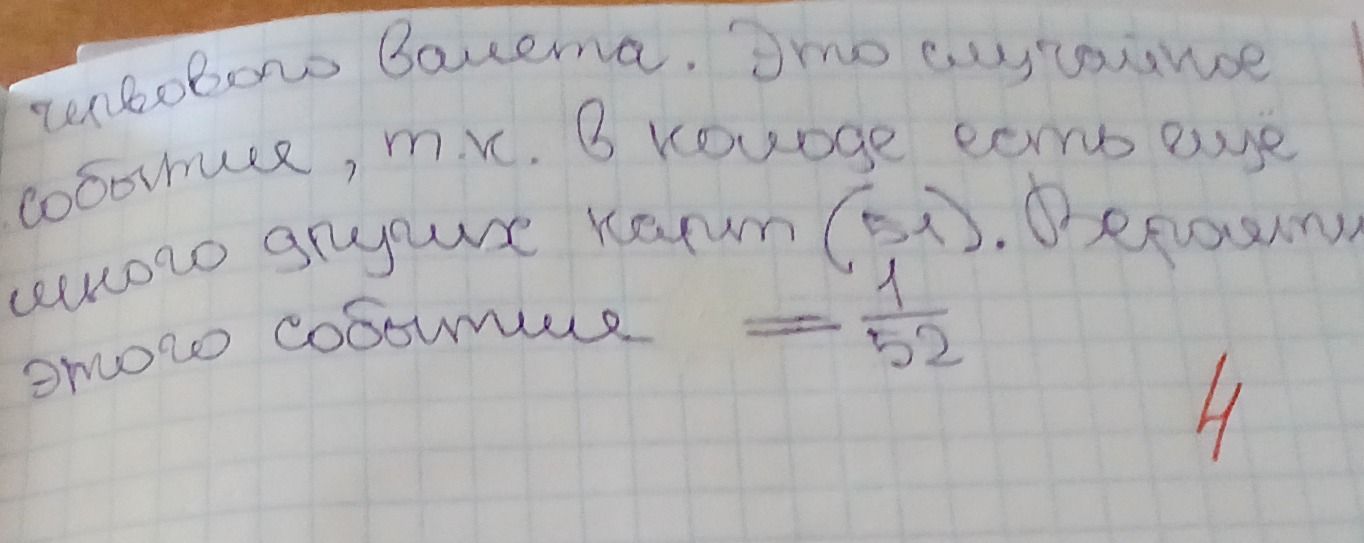 червового валета. Это случайное
событие, т.к. в колоде есть ещё
много других карт (51). Вероятн
этого события = 1/52
4